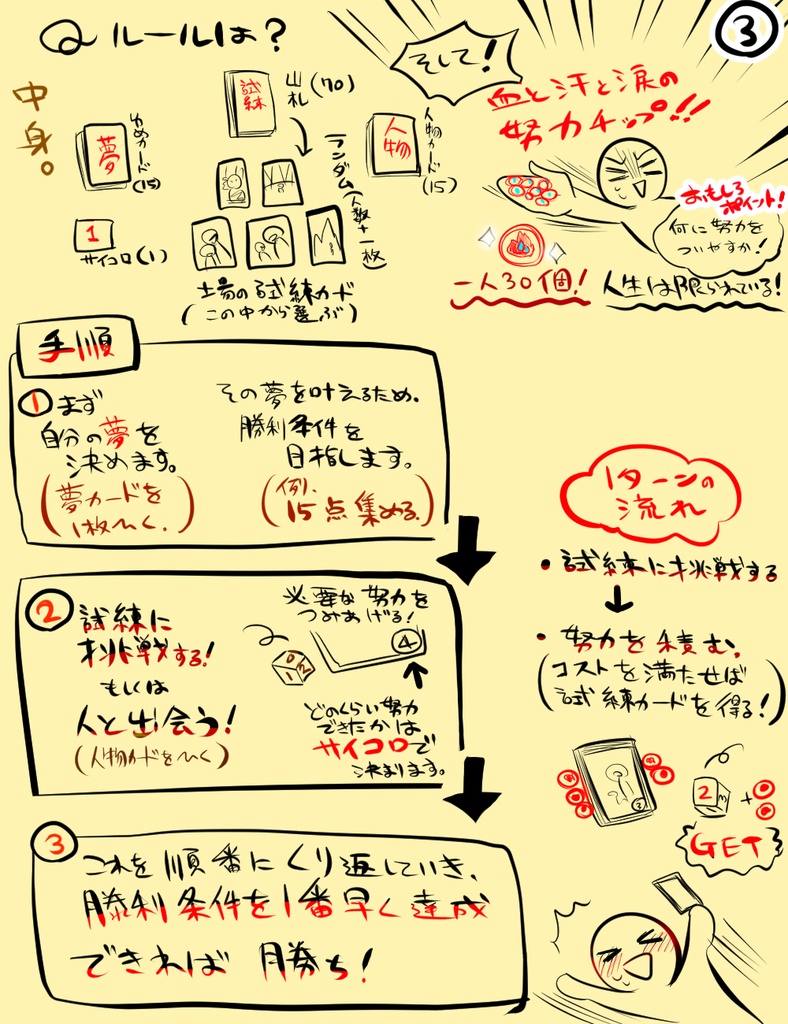 ③
Q ルールは?
中身。
夢
ゆめカード
(15)
1
サイコロ(1)
試練
山札(70)
ランダム(人数+一枚)
人物
人物カード
(15)
土場の試練カード
(この中から選ぶ)
そして!
血と汗と涙の
努力チップ!!
おもしろ
ポイント!
何に努力を
ついやすか!
一人30個!
人生は限られている!
手順
① まず
自分の夢を
決めます。
(夢カードを
1枚ひく。)
その夢を叶えるため、
勝利条件を
目指します。
(例、
15点集める。)
② 試練に
挑戦する!
もしくは
人と出会う!
(人物カードをひく)
必要な努力を
つみあげる!
④
どのくらい努力
できたかは
サイコロで
決まります。
1ターンの
流れ
・試練に挑戦する
・努力を積む。
(コストを満たせば
試練カードを得る!)
2
+
GET
③ これを順番にくり返していき、
勝利条件を1番早く達成
できれば 勝ち!